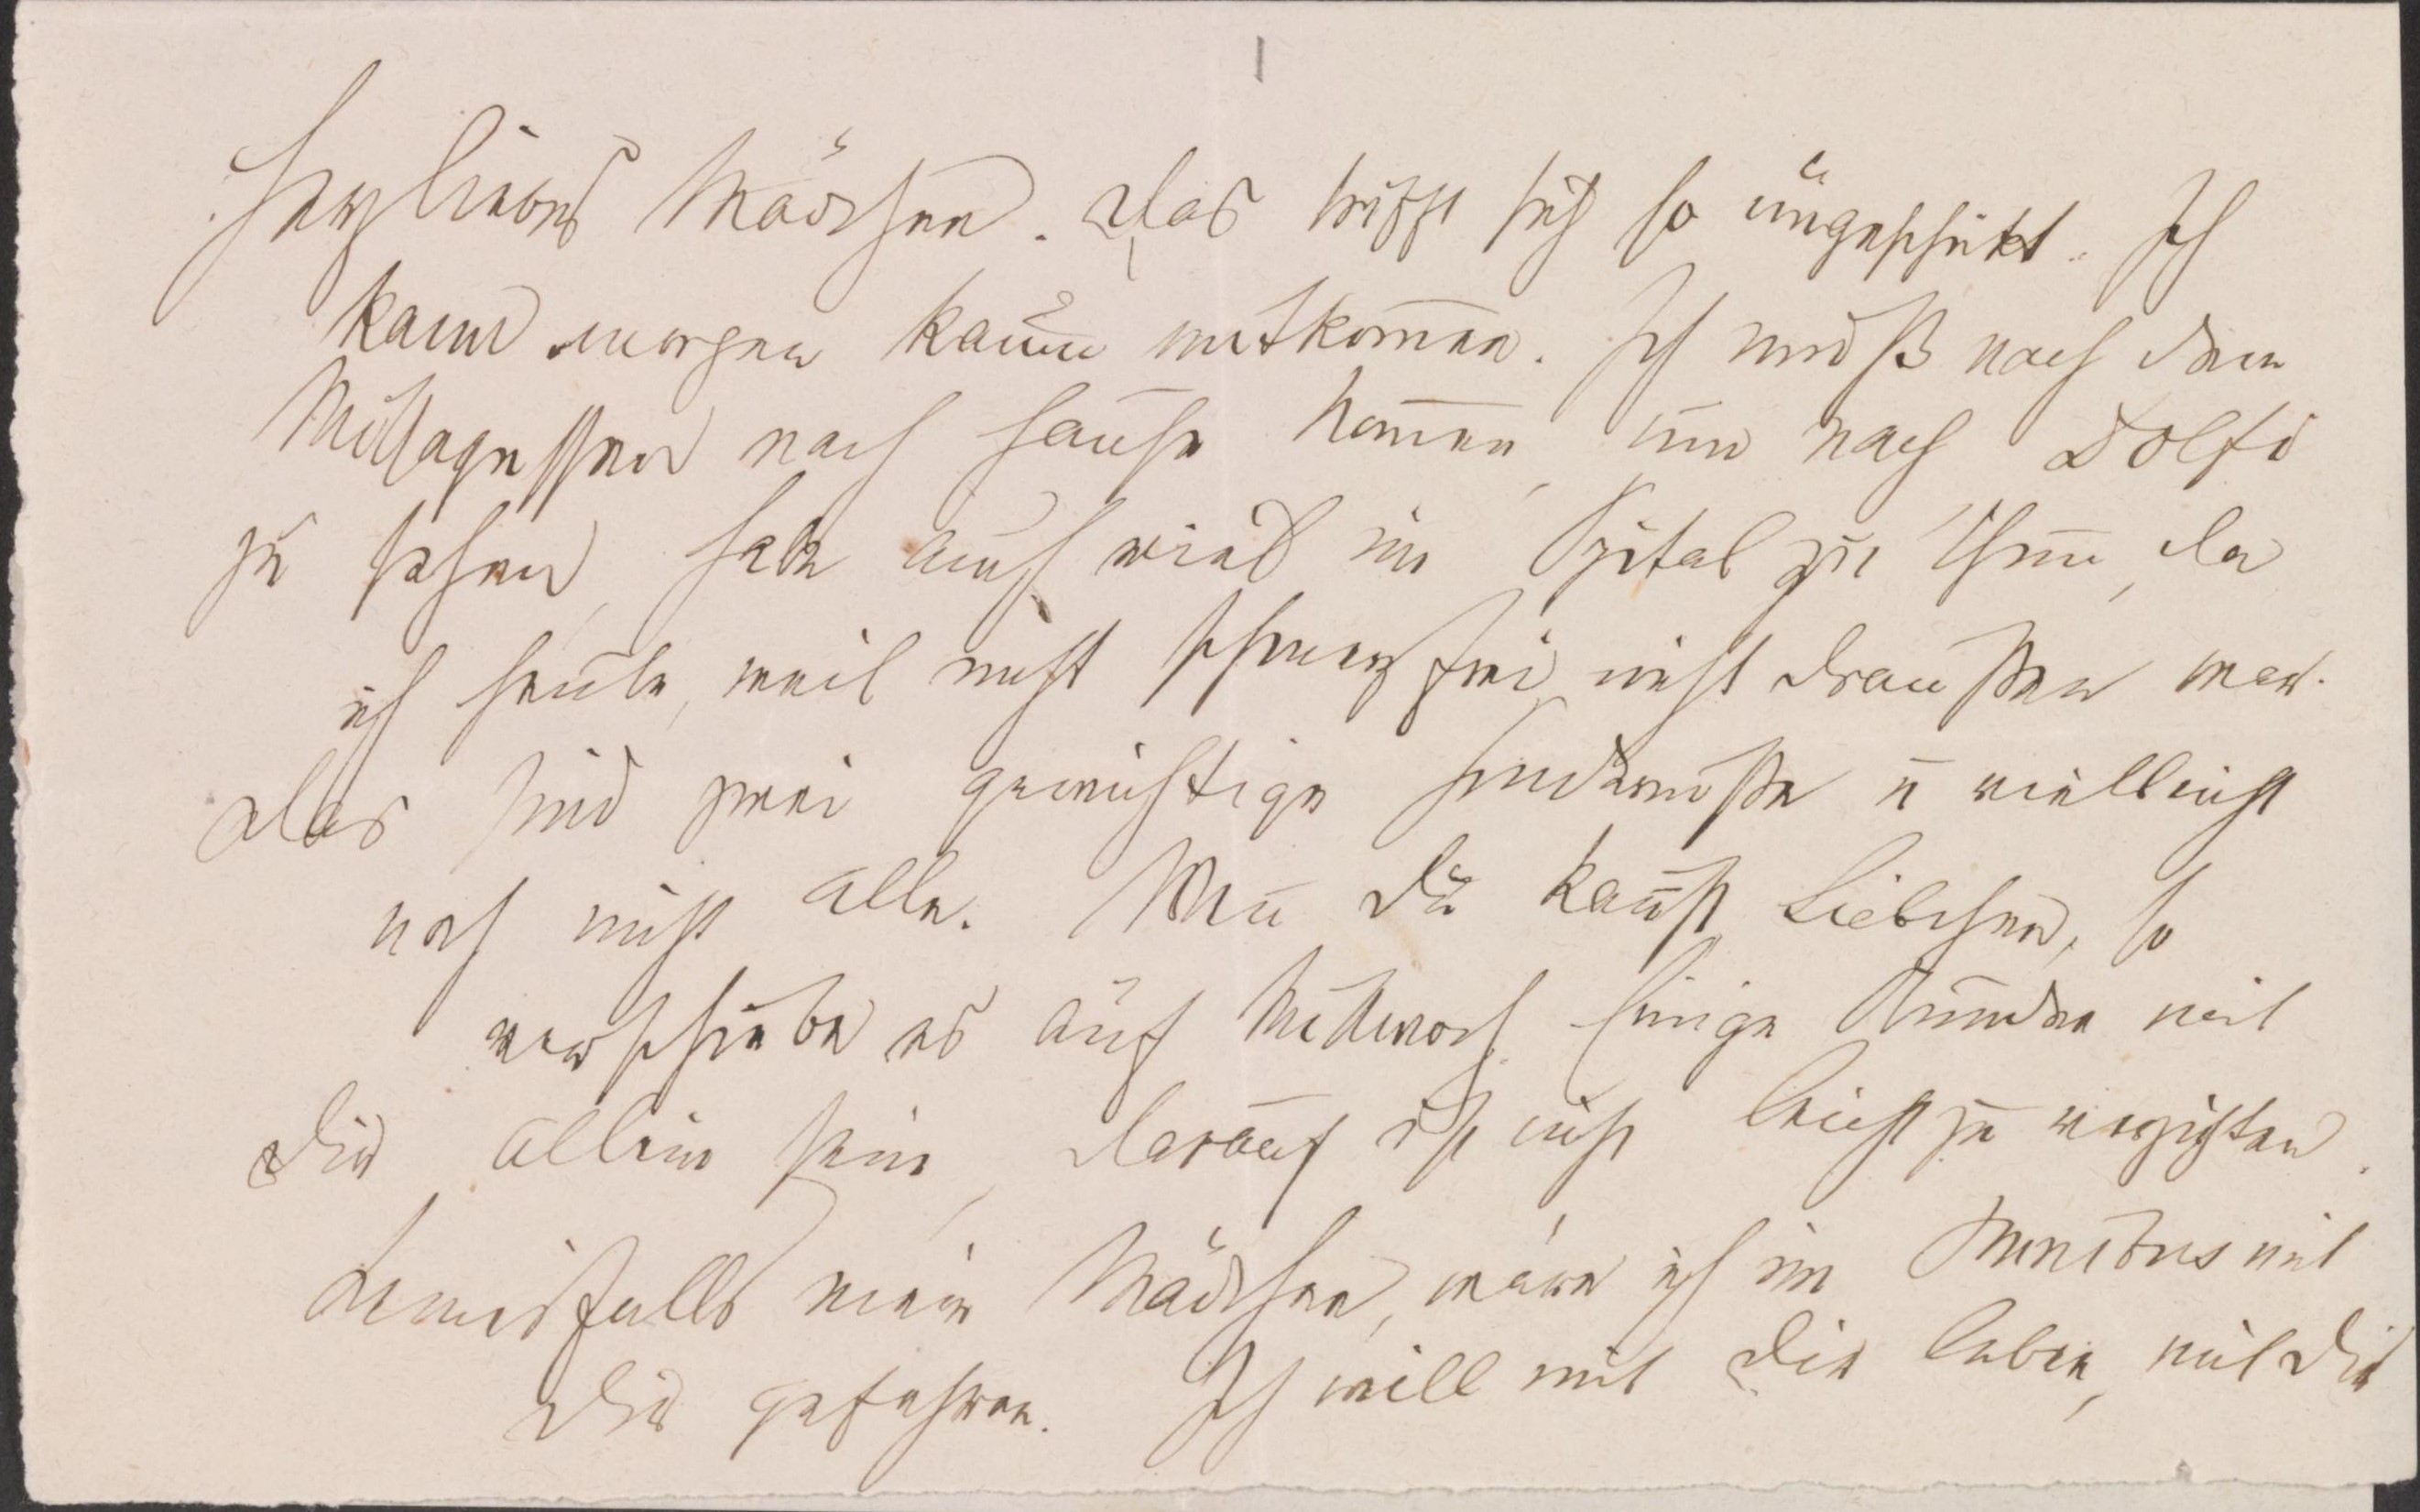 Herzliebes Mädchen. Das trifft sich so ungeschickt. Ich
kann morgen kaum mitkom̅en. Ich muß nach dem
Mittagessen nach Hause kom̅en, um nach Dolfi
zu sehen, habe auch viel im Spital zu thun, da
ich heute, weil nicht schmerzfrei, nicht draußen war.
Das sind zwei gewichtige Hinderniße u vielleicht
noch nicht alle. Wen̅ Du kan̅st Liebchen, so
verschiebe es auf Mittwoch. Einige Stunden mit
Dir allein sein, darauf ist nicht leicht zu verzichten.
mein Mädchen, wäre ich im mit
Dir gefahren. Ich will mit Dir leben, mit Dir